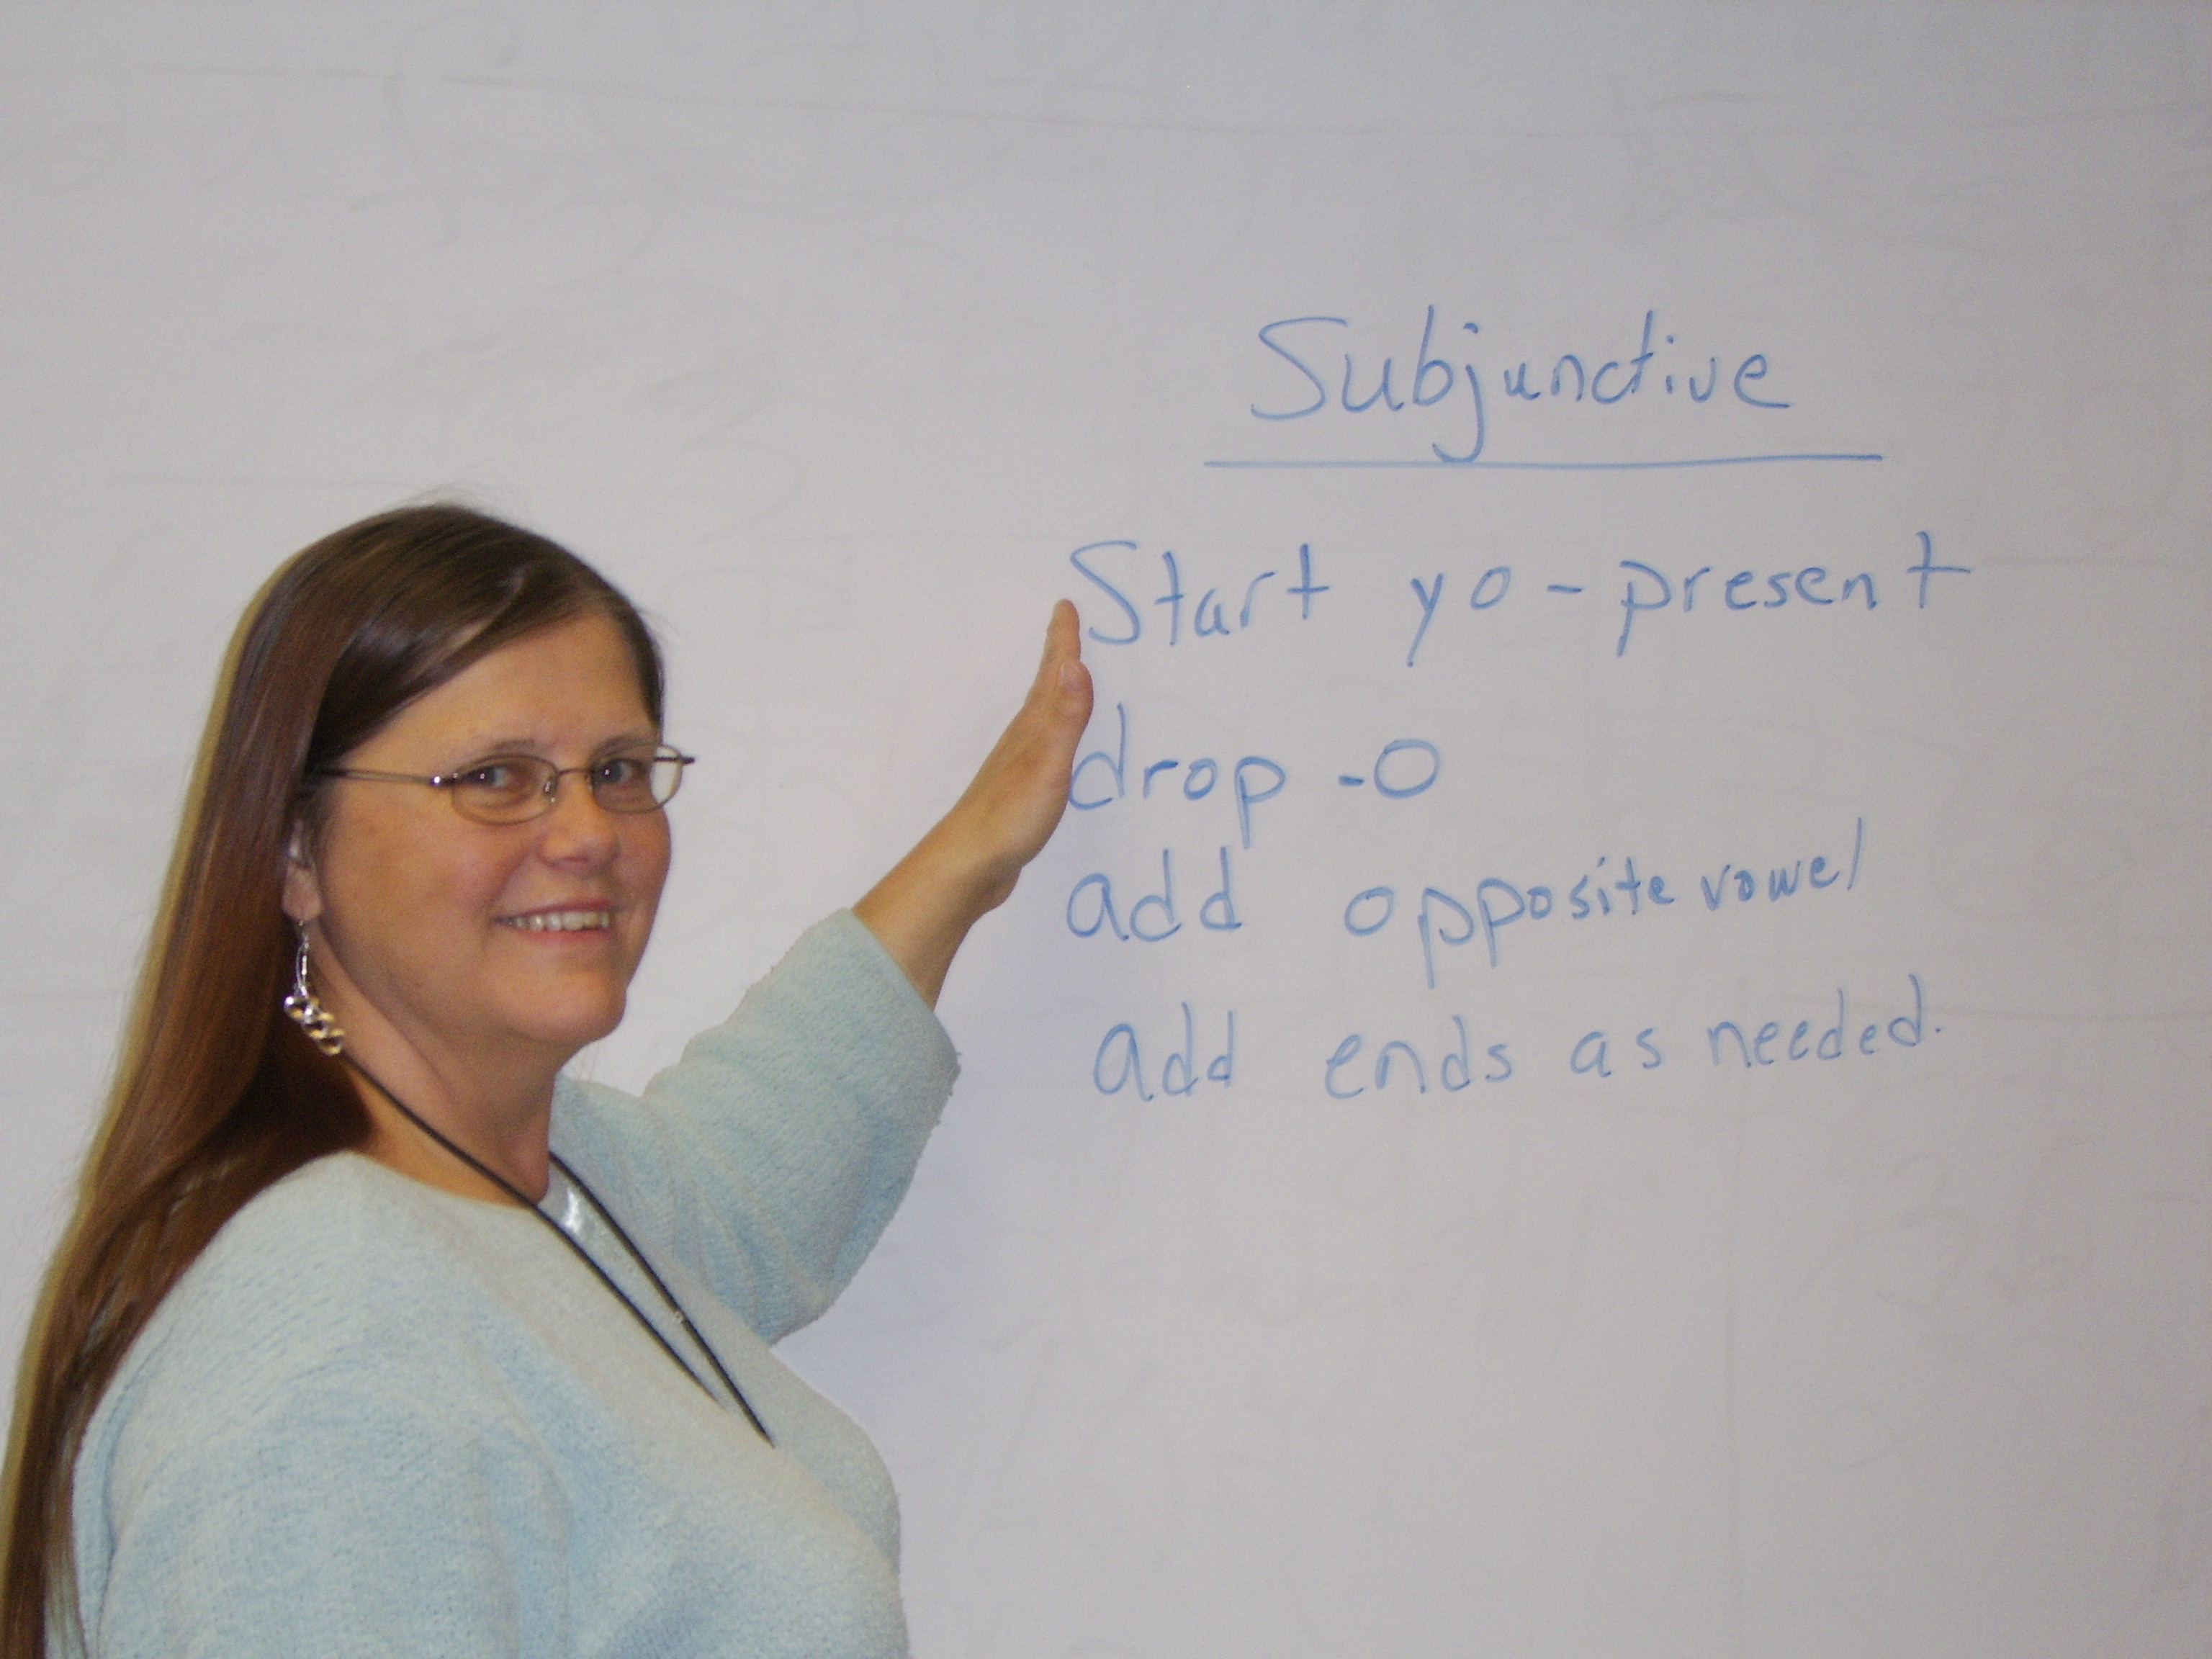 Subjunctive
Start yo - present
drop -o
add opposite vowel
add ends as needed.